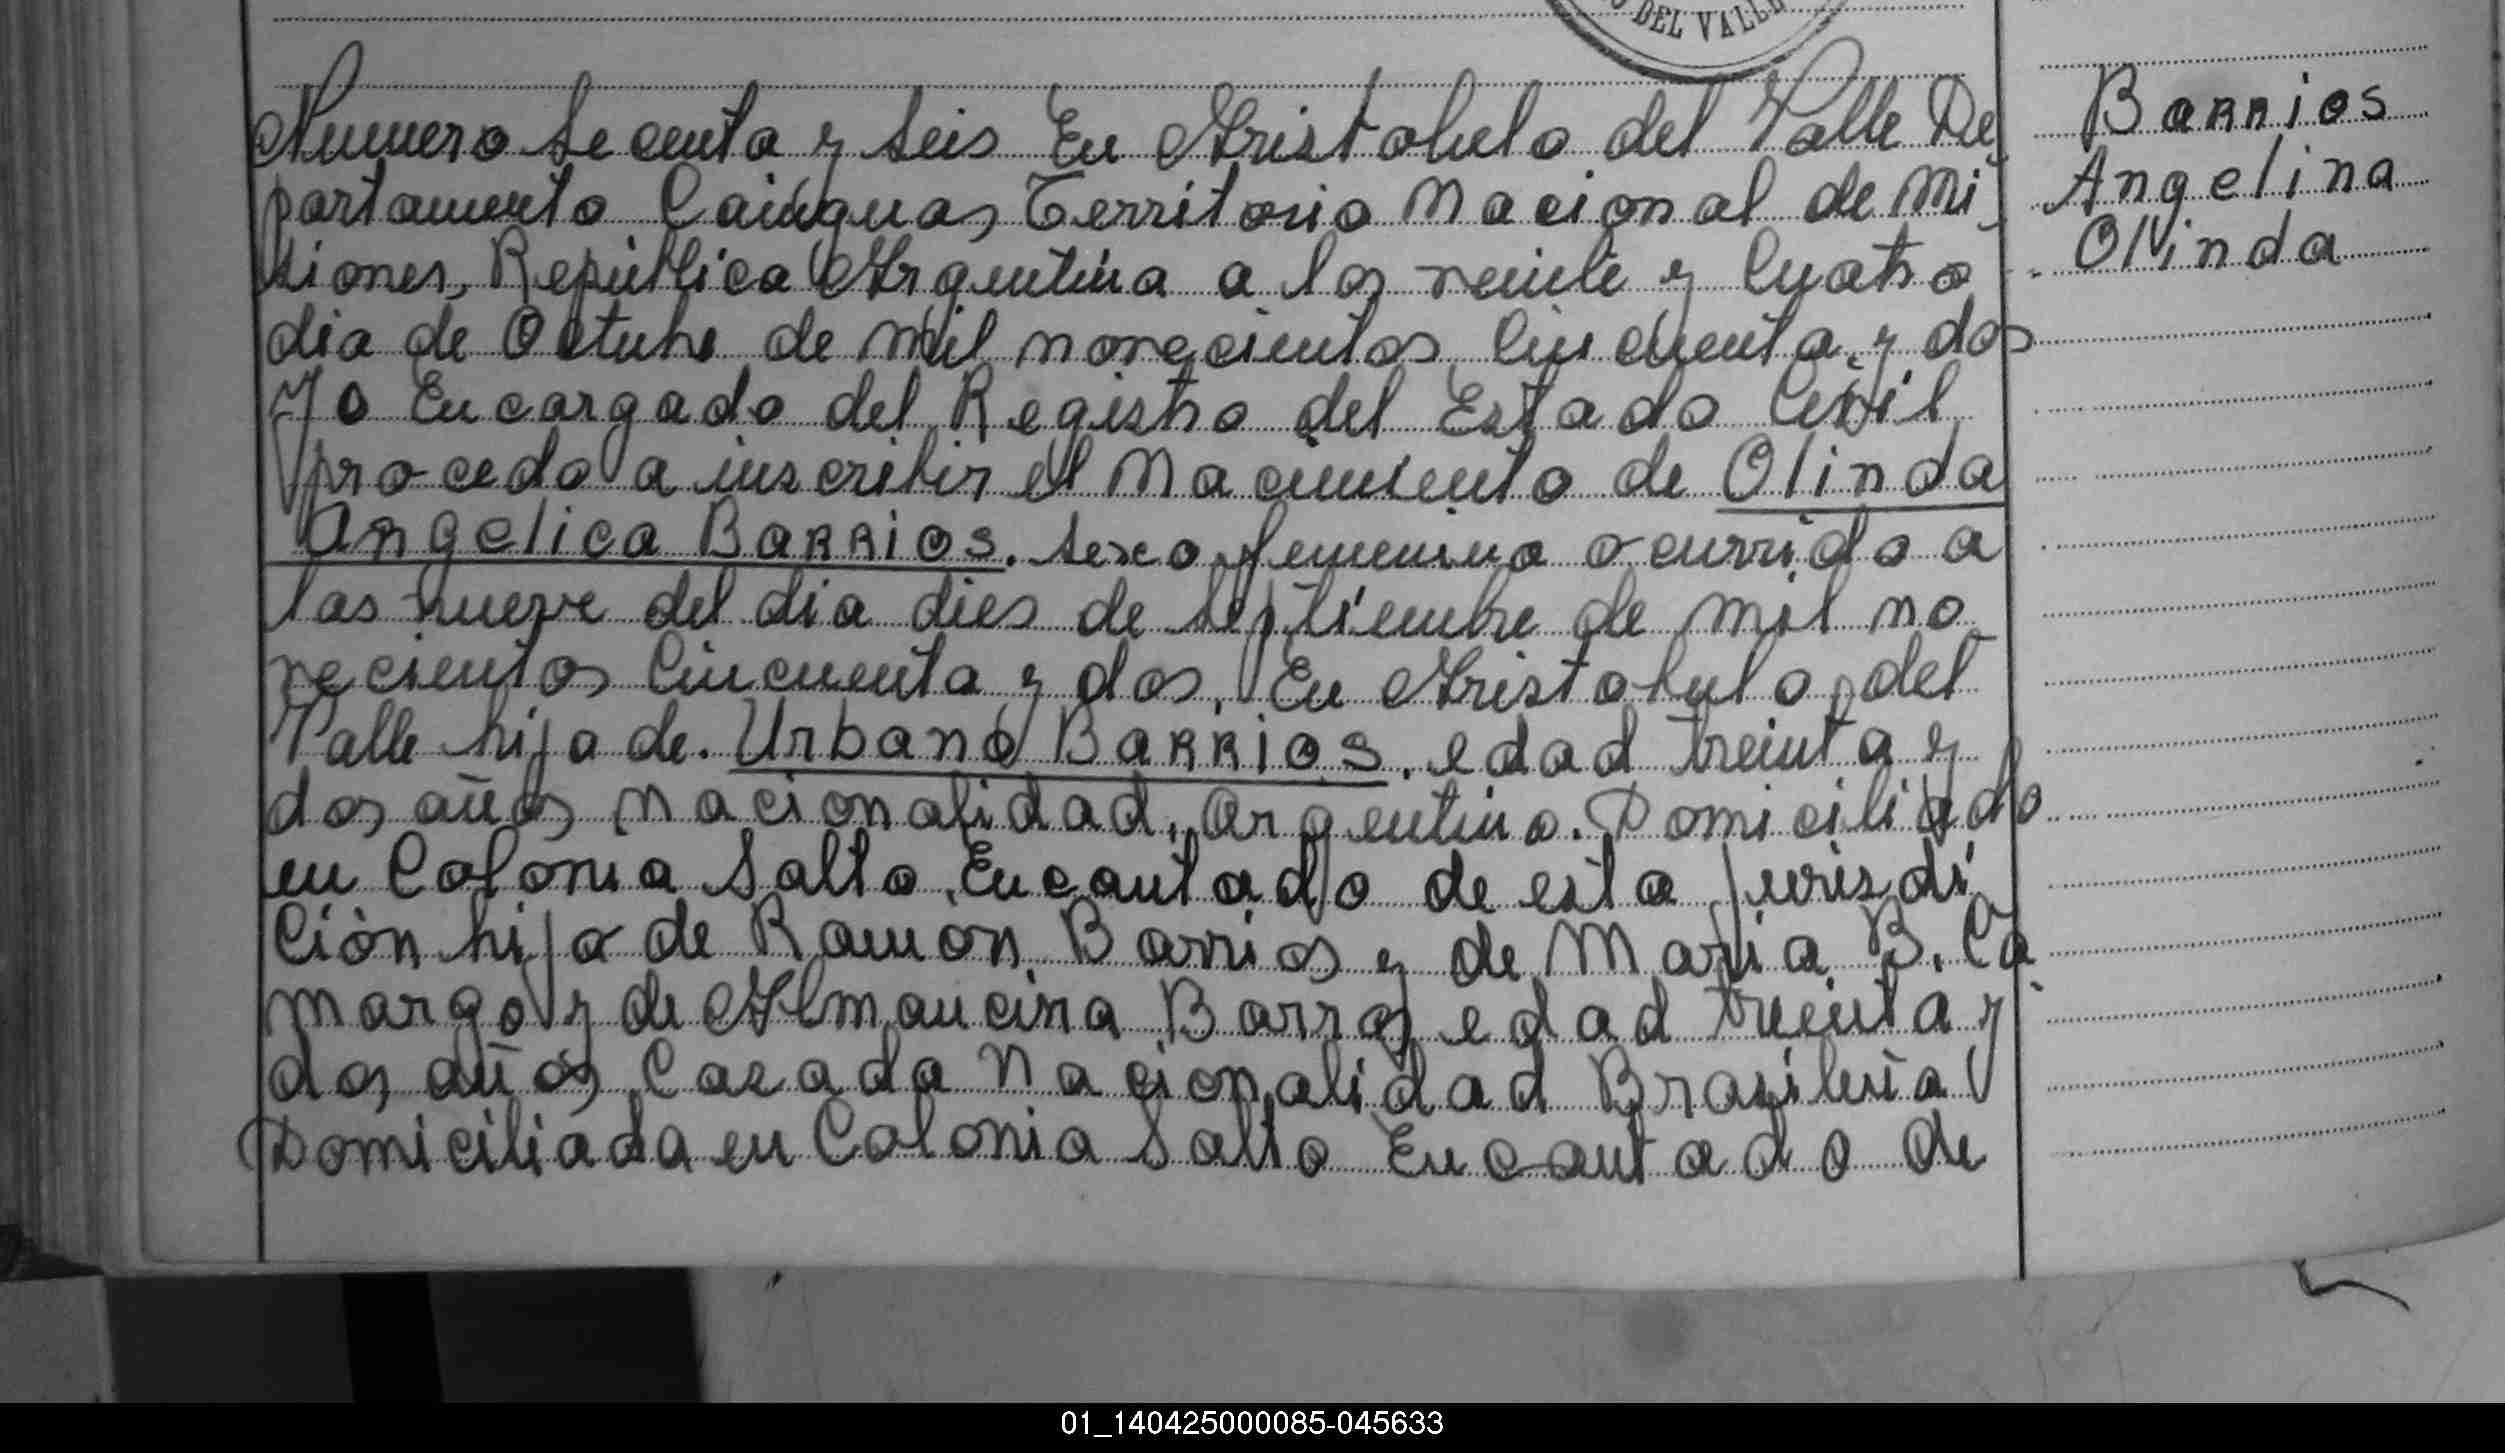 DEL VALLE
Numero Secenta y Seis En Aristobulo del Valle De
partamento Cainguas Territorio Nacional de Mi
siones, República Argentina a los veinte y Cuatro
dia de Octubre de mil novecientos Cincuenta y dos
Yo Encargado del Registro del Estado Civil
procedo a inscribir el Nacimiento de Olinda
Angelica Barrios. Sexo femenino ocurrido a
las nueve del dia dies de Septiembre de mil no
vecientos Cincuenta y dos, En Aristobulo del
Valle hija de. Urbano Barrios. edad treinta y
dos años nacionalidad, Argentino. Domiciliado
en Colonia Salto Encantado de esta jurisdi
Ción hijo de Ramon Barrios y de Maria B. Ca
margo y de Almancina Barros edad treinta y
dos años Casada Nacionalidad Brasileña
Domiciliada en Colonia Salto Encantado de
Barrios
Angelina
Olinda
01_140425000085-045633